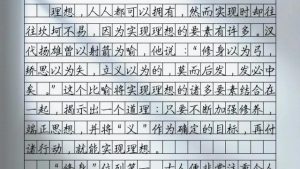 理想，人人都可以拥有，然而实现时却往
往坎坷不易，因为实现理想的要素有许多。汉
代扬雄曾以射箭为喻，他说：“修身以为弓，
矫思以为矢，立义以为的，奠而后发，发必中
矣。”这个比喻将实现理想的诸多要素结合在
一起，揭示出一个道理：只要不断加强修养，
端正思想，并将“义”作为确定的目标，再付
诸行动，就能实现理想。
“修身”位列第一，古人便非常注重个人